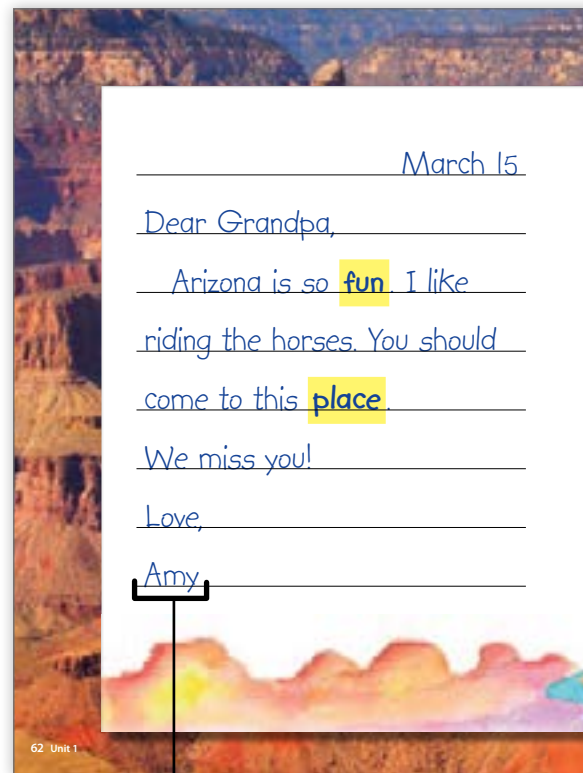 March 15
Dear Grandpa,
Arizona is so fun. I like
riding the horses. You should
come to this place.
We miss you!
Love,
Amy
62 Unit 1